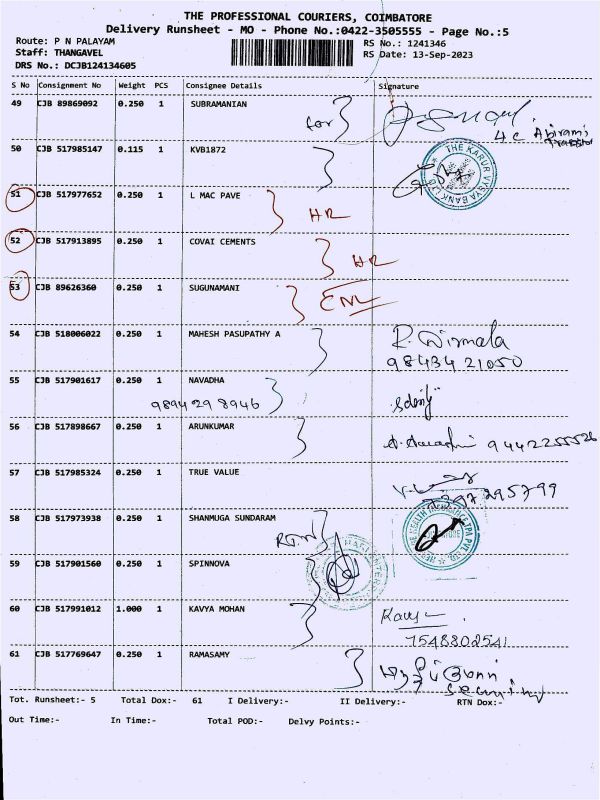 THE PROFESSIONAL COURIERS, COIMBATORE
Delivery Runsheet - MO - Phone No.:0422-3505555 - Page No.:5
Route: P N PALAYAM
RS No.: 1241346
Staff: THANGAVEL
RS Date: 13-Sep-2023
DRS No.: DCJB124134605
S No Consignment No Weight PCS Consignee Details Signature
49 CJB 89869092 0.250 1 SUBRAMANIAN
for
50 CJB 517985147 0.115 1 KVB1872
THE KARUR VYSYA BANK
51 CJB 517977652 0.250 1 L MAC PAVE
HR
52 CJB 517913895 0.250 1 COVAI CEMENTS
HR
53 CJB 89626360 0.250 1 SUGUNAMANI
54 CJB 518006022 0.250 1 MAHESH PASUPATHY A R. Nirmala
98434 21050
55 CJB 517901617 0.250 1 NAVADHA
9894298946
56 CJB 517898667 0.250 1 ARUNKUMAR 9442255526
57 CJB 517985324 0.250 1 TRUE VALUE
58 CJB 517973938 0.250 1 SHANMUGA SUNDARAM
59 CJB 517901560 0.250 1 SPINNOVA
60 CJB 517991012 1.000 1 KAVYA MOHAN
7548802541
61 CJB 517769647 0.250 1 RAMASAMY
Tot. Runsheet:- 5 Total Dox:- 61 I Delivery:- II Delivery:- RTN Dox:-
Out Time:- In Time:- Total POD:- Delvy Points:-